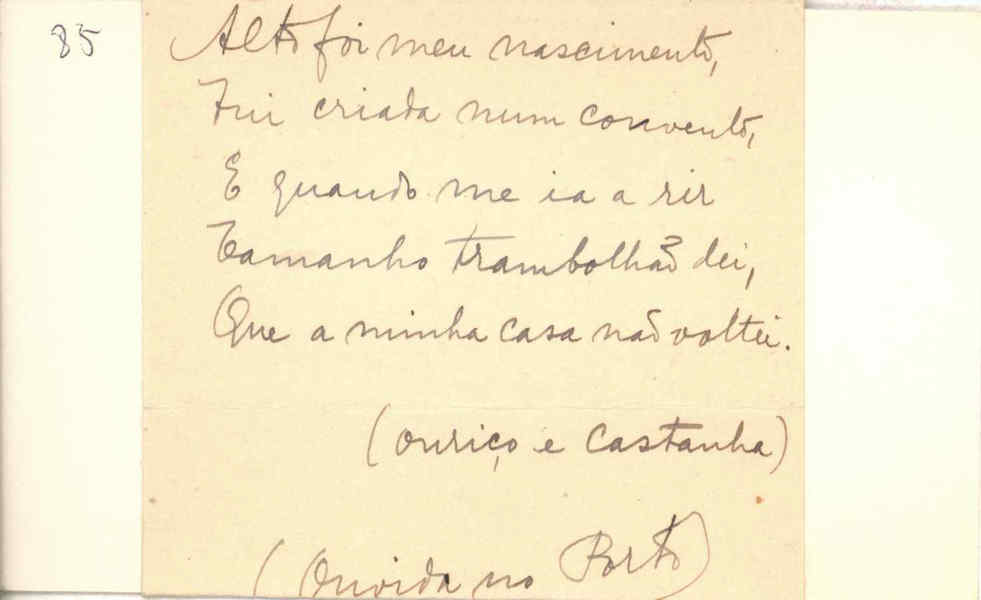 85
Alto foi meu nascimento,
Fui criada num convento,
E quando me ia a rir
Tamanho trambolhão dei,
Que a minha casa não voltei.
(Ouriço e Castanha)
(Ouvida no Porto)